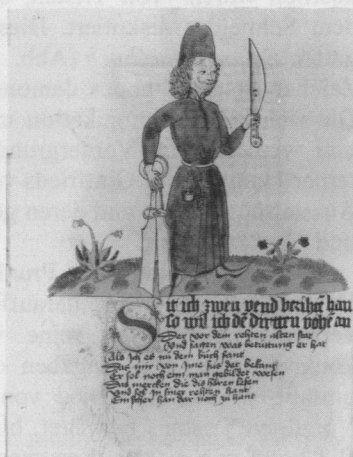 Sit ich zwen vend beriht han
So wil ich dē dirtten vohe an
Der vor dem rehten alten stat
Vnd sagen was betutung er hat
Als Ich es an dem buch fant
Das mir von Jme sus det bekant
Er sol noch eim man gebildet wesen
Das mercken die dis hören lesen
Vnd sol in siner rehten hant
Ein scher han dar noch zu hant